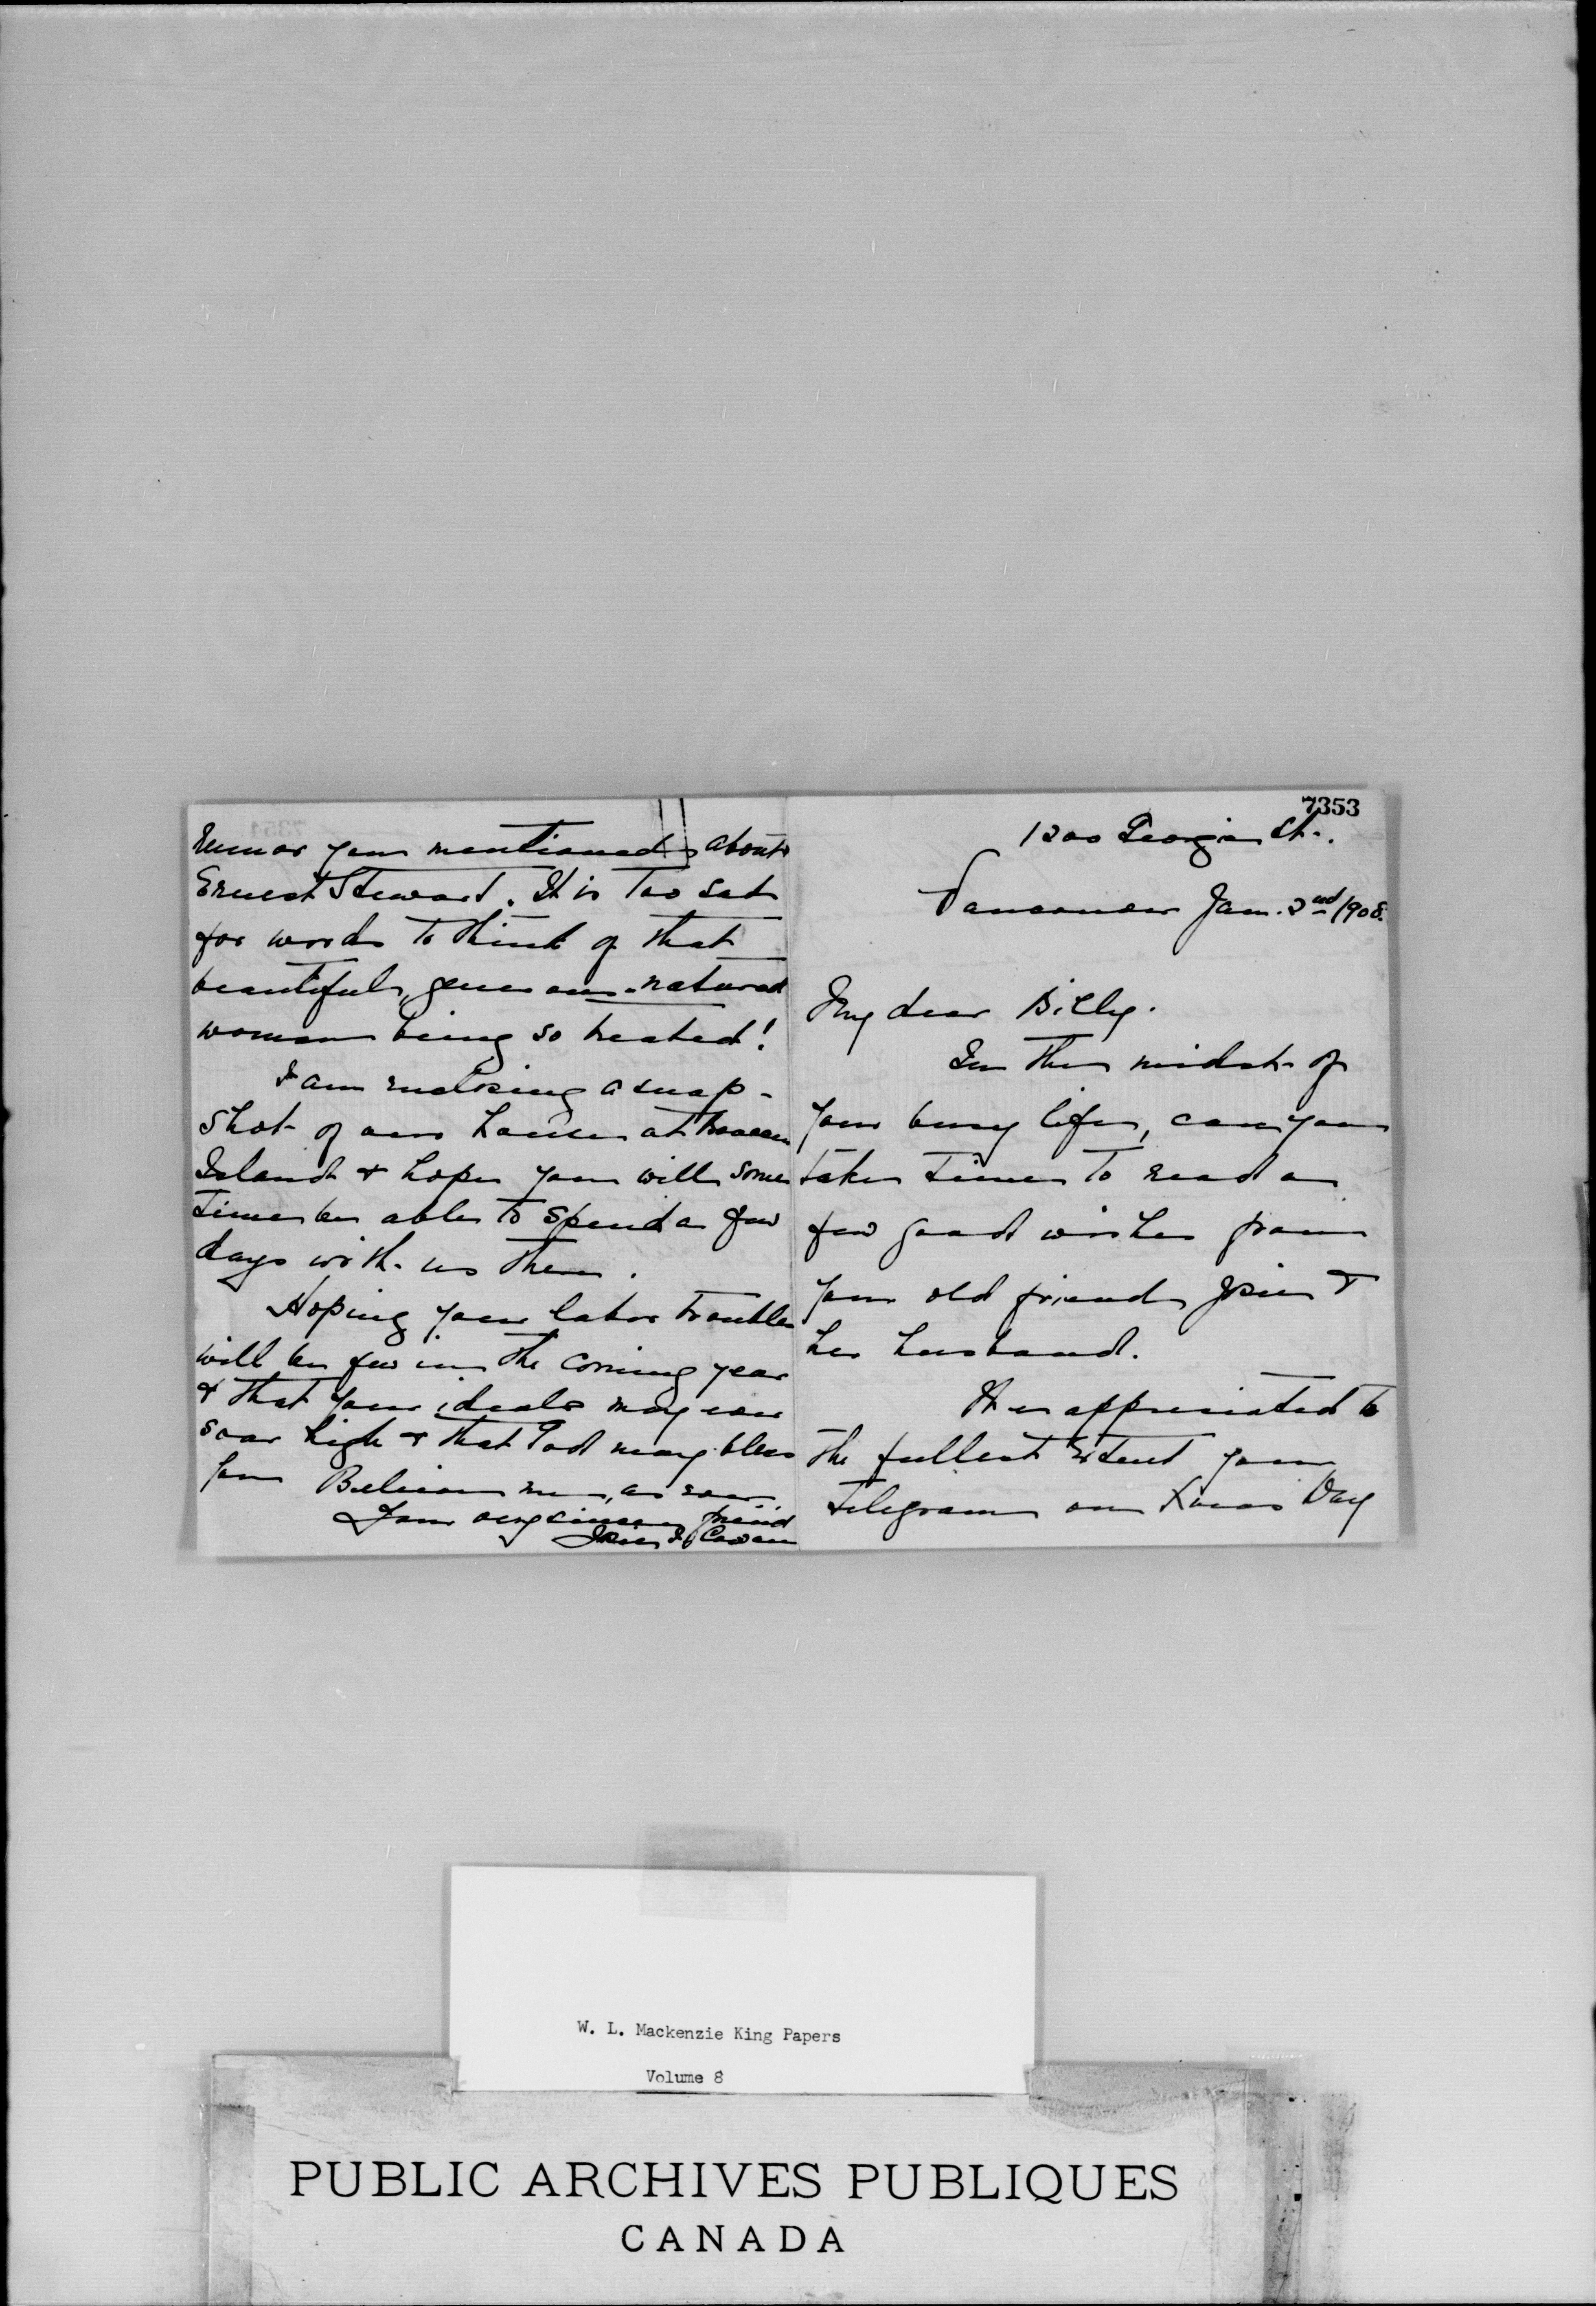 7353
1200 Georgia St.
Vancouver Jan. 2nd/1908.
My dear Billy.
In the midst of
your busy life, can you
take time to read a
few good wishes from
your old friend, Josie &
her husband.
We appreciated to
the fullest extent your
telegram on Xmas Day
rumor you mentioned about
Ernest Steward. It is too sad
for words to think of that
beautiful, generous-natured
woman being so treated!
I am enclosing a snap-
shot of our house at Bowen
Island & hope you will some
time be able to spend a few
days with us there.
Hoping your labor troubles
will be few in the coming year
& that your ideals may ever
soar high & that God may bless
you Believe me, as ever
Your very sincere friend
Josie Cowan
W. L. Mackenzie King Papers
Volume 8
PUBLIC ARCHIVES PUBLIQUES
CANADA